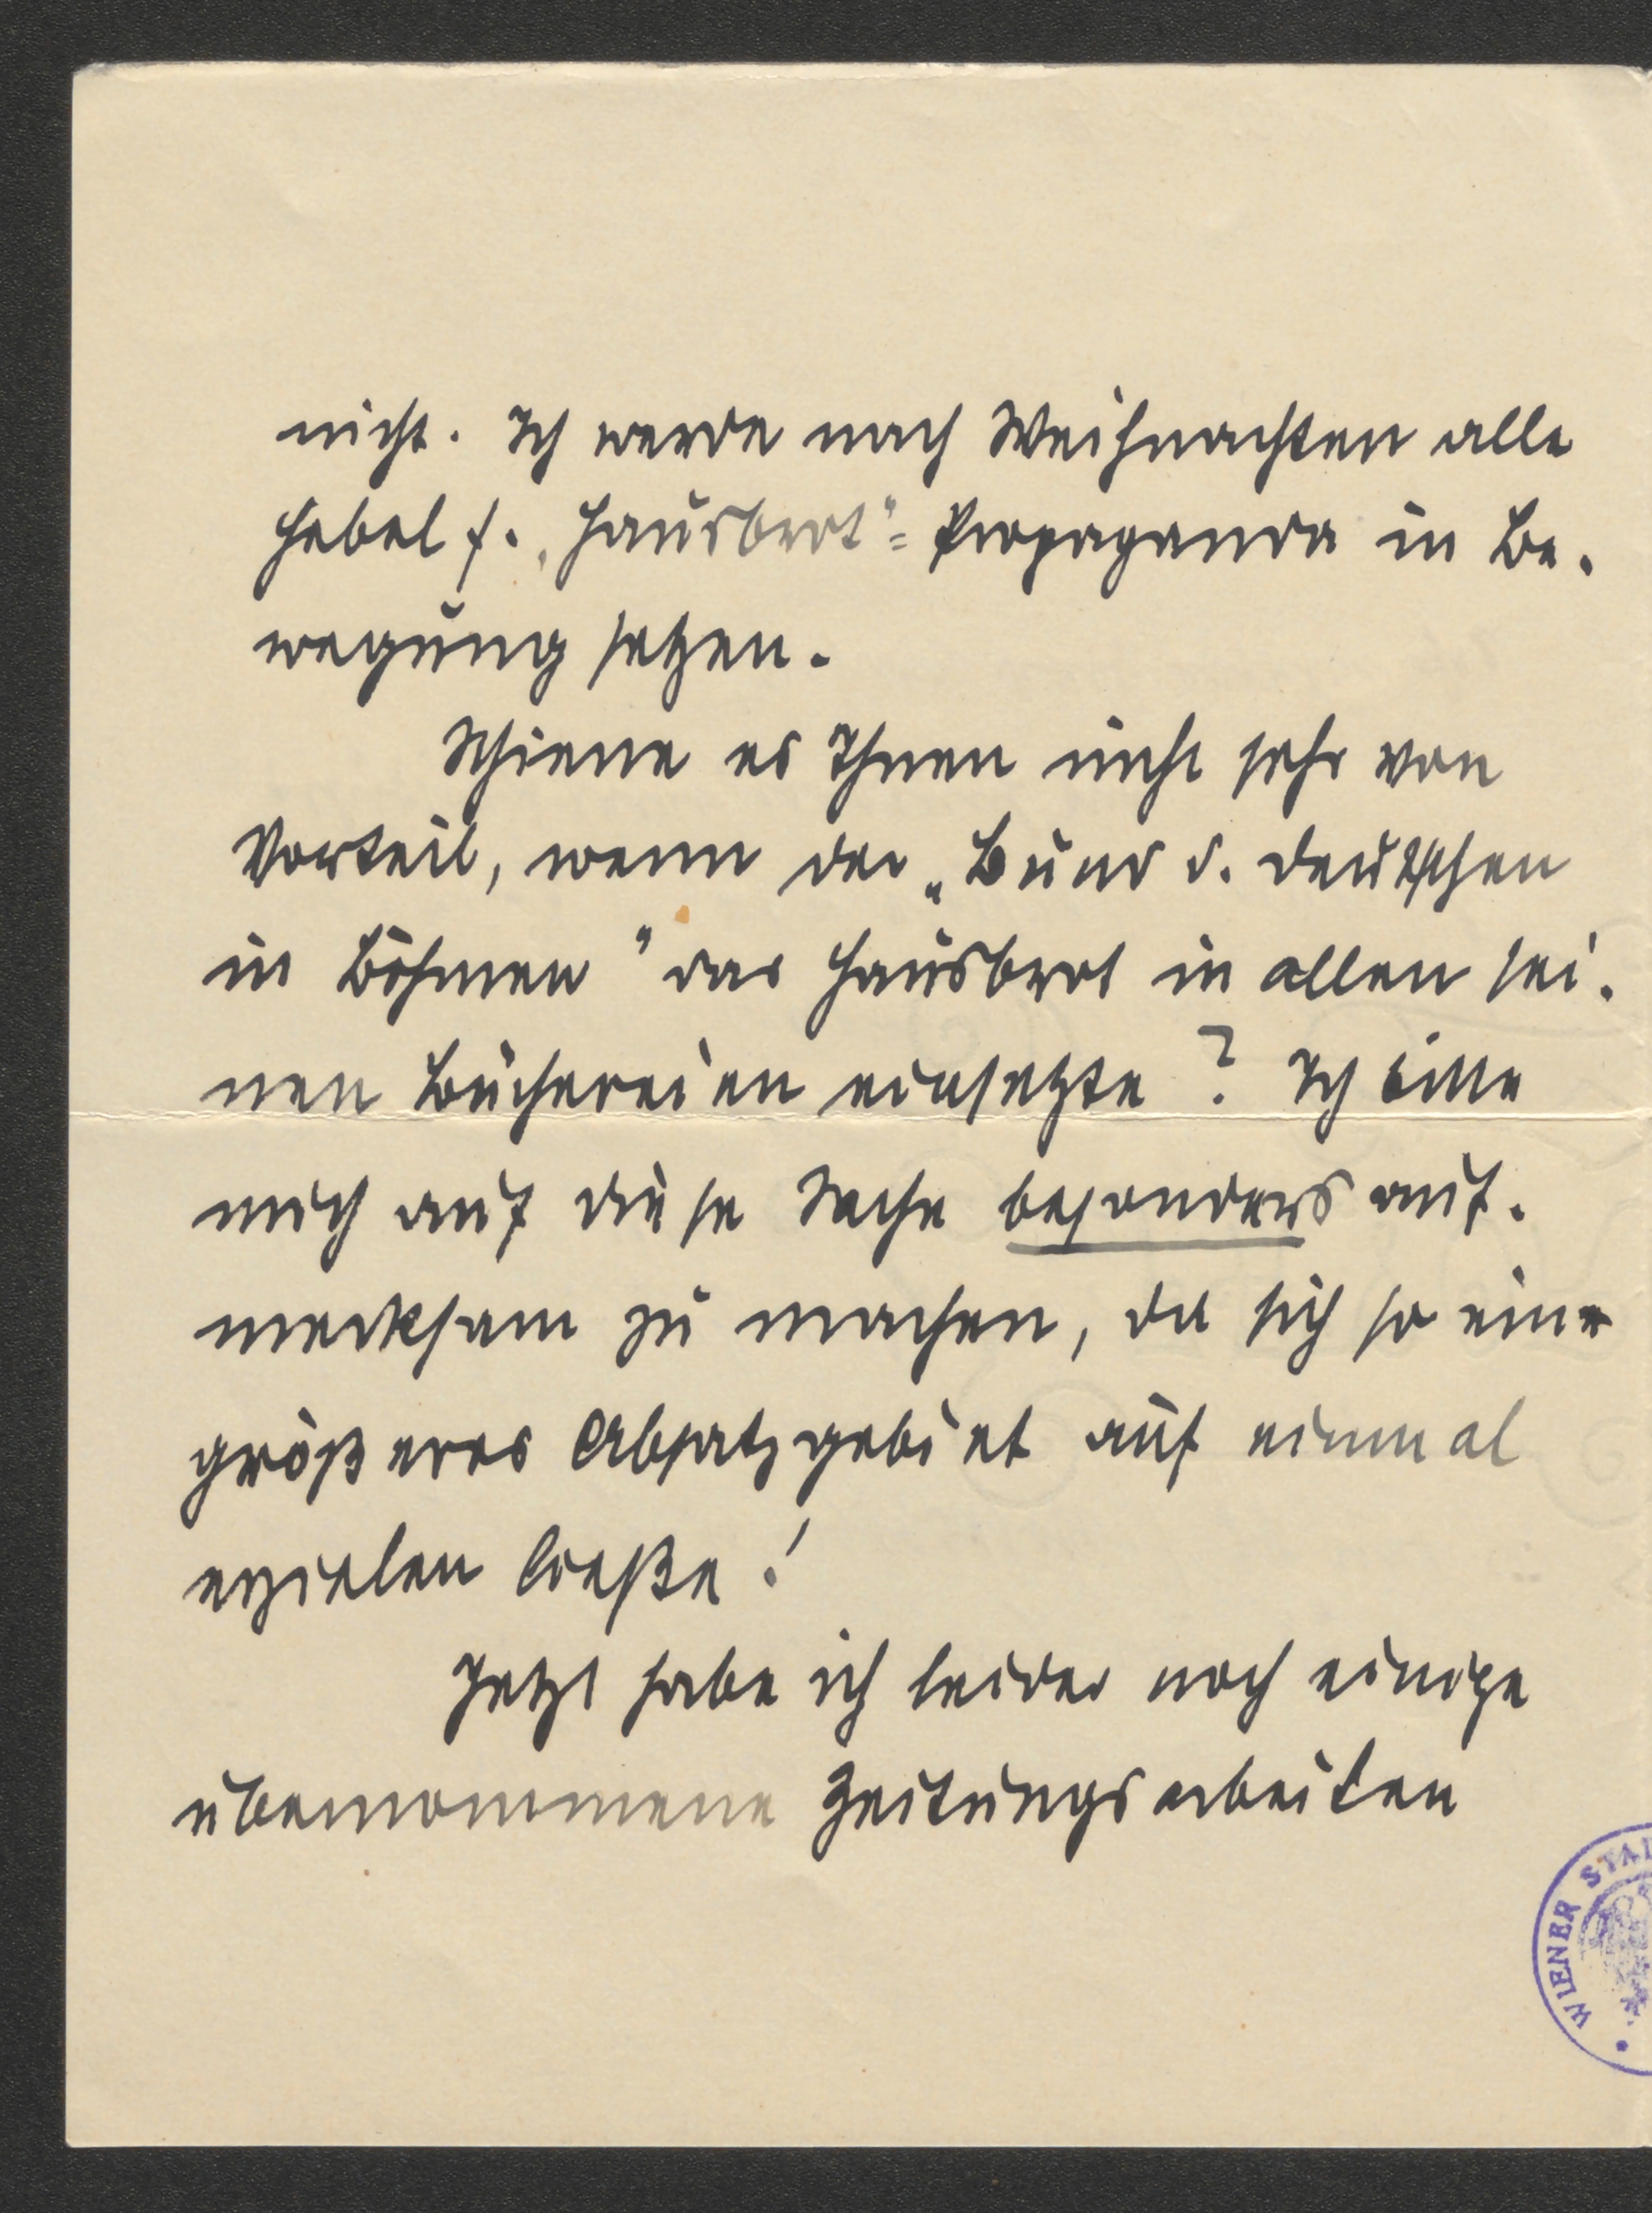 nicht. Ich werde nach Weihnachten alle
Hebel f. „Hausbrot"= Propaganda in Be-
wegung setzen.
Schiene es Ihnen nicht sehr von
Vorteil, wenn der „Bund d. Deutschen
in Böhmen" das Hausbrot in allen sei-
nen Büchereien einsetzte? Ich bitte
mich auf diese Sache besonders auf-
merksam zu machen, da sich so ein
größeres Absatzgebiet auf einmal
erzielen ließe!
Jetzt habe ich leider noch einige
übernommene Zeitungsarbeiten
WIENER